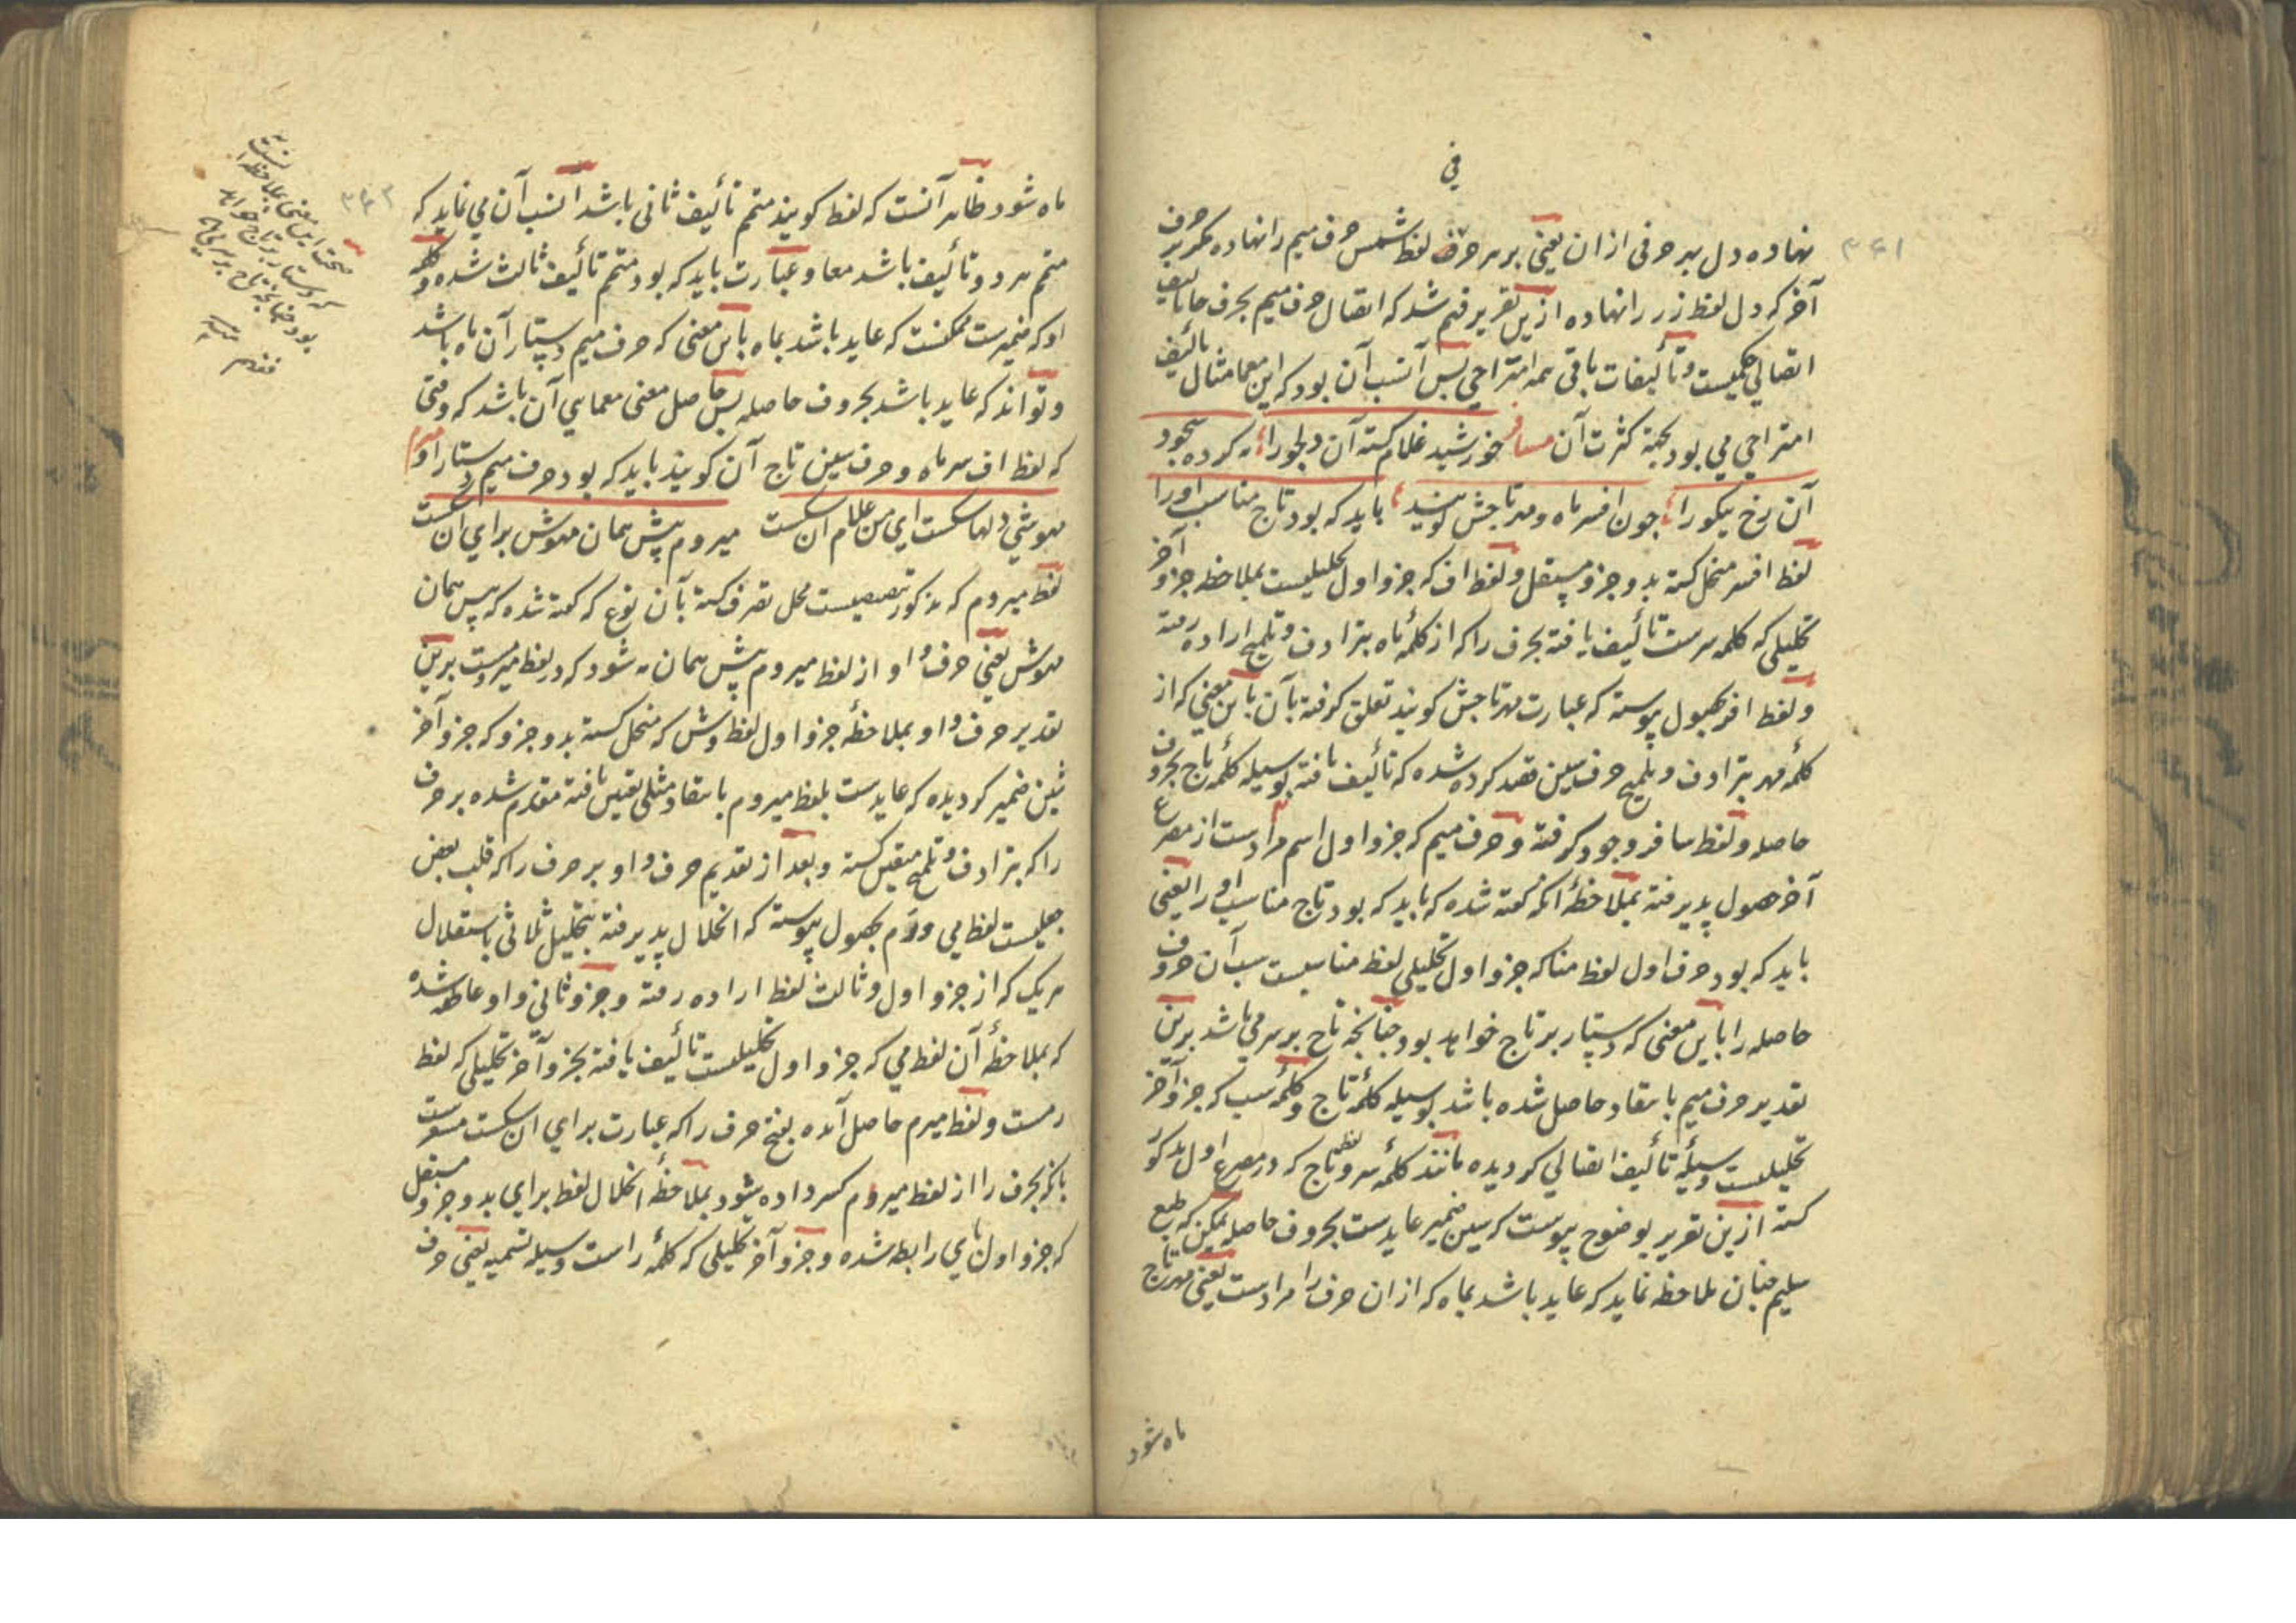 فی
۳۶۱
نهاده دل بهر حرفی از ان یعنی بر هر حرف لفظ شمس حرف میم را نهاده مکرر بر حرف
آخر که دل لفظ زر را نهاده ازین تقریر فهم شد که اتصال حرف میم بحرف حا تالیف
اتصالی حکمیست و تألیفات باقی همه امتزاجی پس انسب آن بود که این معما مثال تالیف
امتزاجی می بود بجهة کثرت آن مسافر خورشید غلام کشته آن دلجو را مه کرده سجود
آن رخ نیکو را چون افسر ماه و مهر تاجش کویند باید که بود تاج مناسب او را
لفظ افسر منحل کشته بدو جزو مستقل و لفظ اف که جزو اول تحلیلیست بملاحظه جزو آخر
تحلیلی که کلمه سرست تألیف یافته بحرف را که از کلمهٔ ماه بترادف و تلمیح اراده رفته
و لفظ افر بحصول پیوسته که عبارت مهر تاجش کویند تعلق کرفته بآن باین معنی که از
کلمهٔ مهر بترادف و تلمیح حرف سین قصد کرده شده که تألیف یافته بوسیله کلمهٔ تاج بحروف
حاصله و لفظ سافر وجود کرفته و حرف میم که جزو اول اسم مرادست از مصرع
آخر حصول پذیرفته بملاحظهٔ آنکه کفته شده که باید که بود تاج مناسب او را یعنی
باید که بود حرف اول لفظ منا که جزو اول تحلیلی لفظ مناسبست سب آن حروف
حاصله را باین معنی که دستار بر تاج خواهد بود چنانچه تاج بر سر می باشد برین
تقدیر حرف میم باسقاد حاصل شده باشد بوسیله کلمهٔ تاج و کلمهٔ سب که جزو آخر
تحلیلیست وسیلهٔ تألیف اتصالی کردیده مانند کلمهٔ سر و لفظ تاج که در مصرع اول مذکور
کشته ازین تقریر بوضوح پیوست که سین ضمیر عایدست بحروف حاصله لیکن که طبع
سلیم چنان ملاحظه نماید که عاید باشد بماه که از ان حرف را مرادست یعنی مهر تاج
ماه شود
۳۶۲
ماه شود ظاهر آنست که لفظ کویند متمم تألیف ثانی باشد انسب آن می نماید که
متمم هر دو تألیف باشد معا و عبارت باید که بود متمم تألیف ثالث شده و کلمه
او که ضمیرست ممکنست که عاید باشد بماه باین معنی که حرف میم دستار آن ماه باشد
و تواند که عاید باشد بحروف حاصله پس حاصل معنی معمایی آن باشد که وقتی
که لفظ اف سر ماه و حرف سین تاج آن کویند باید که بود حرف میم دستار او
مهوشی دلها شکست ای من غلام آن شکست میروم پیش همان مهوش برای آن شکست
لفظ میروم که مذکور محل تصرف کشته بآن نوع که کفته شده که پیش همان
مهوش یعنی حرف واو از لفظ میروم پیش همان مه شود که در لفظ میروست برین
تقدیر حرف واو بملاحظهٔ جزو اول لفظ وش که منحل کشته بدو جزو که جزو آخر
شین ضمیر کردیده که عایدست بلفظ میروم باسقاد مثلی تعین یافته مقدم شده بر حرف
را که بترادف و تلمیح متعین کشته و بعد از تقدیم حرف واو بر حرف را که قلب بعض
جعلیست لفظ می ورم بحصول پیوسته که انحلال پذیرفته بتحلیل ثلاثی باستقلال
هر یک که از جزو اول و ثالث لفظ اراده رفته و جزو ثانی واو عاطفه شده
که بملاحظهٔ آن لفظ می که جزو اول تحلیلیست تألیف یافته بجزو آخر تحلیلی که لفظ
رمست و لفظ میرم حاصل آمده بفتح حرف را که عبارت برای آن شکست مشعرست
بانکه بحرف را از لفظ میروم کسر داده شود بملاحظهٔ انحلال لفظ برای بدو جزو مستقل
که جزو اول بای رابطه شده و جزو آخر تحلیلی که کلمهٔ راست وسیله تسمیه یعنی حرف
صحت این معنی بملاحظه آنست
که دستار بر تاج خواهد
بود چنانچه تاج بر سر می باشد